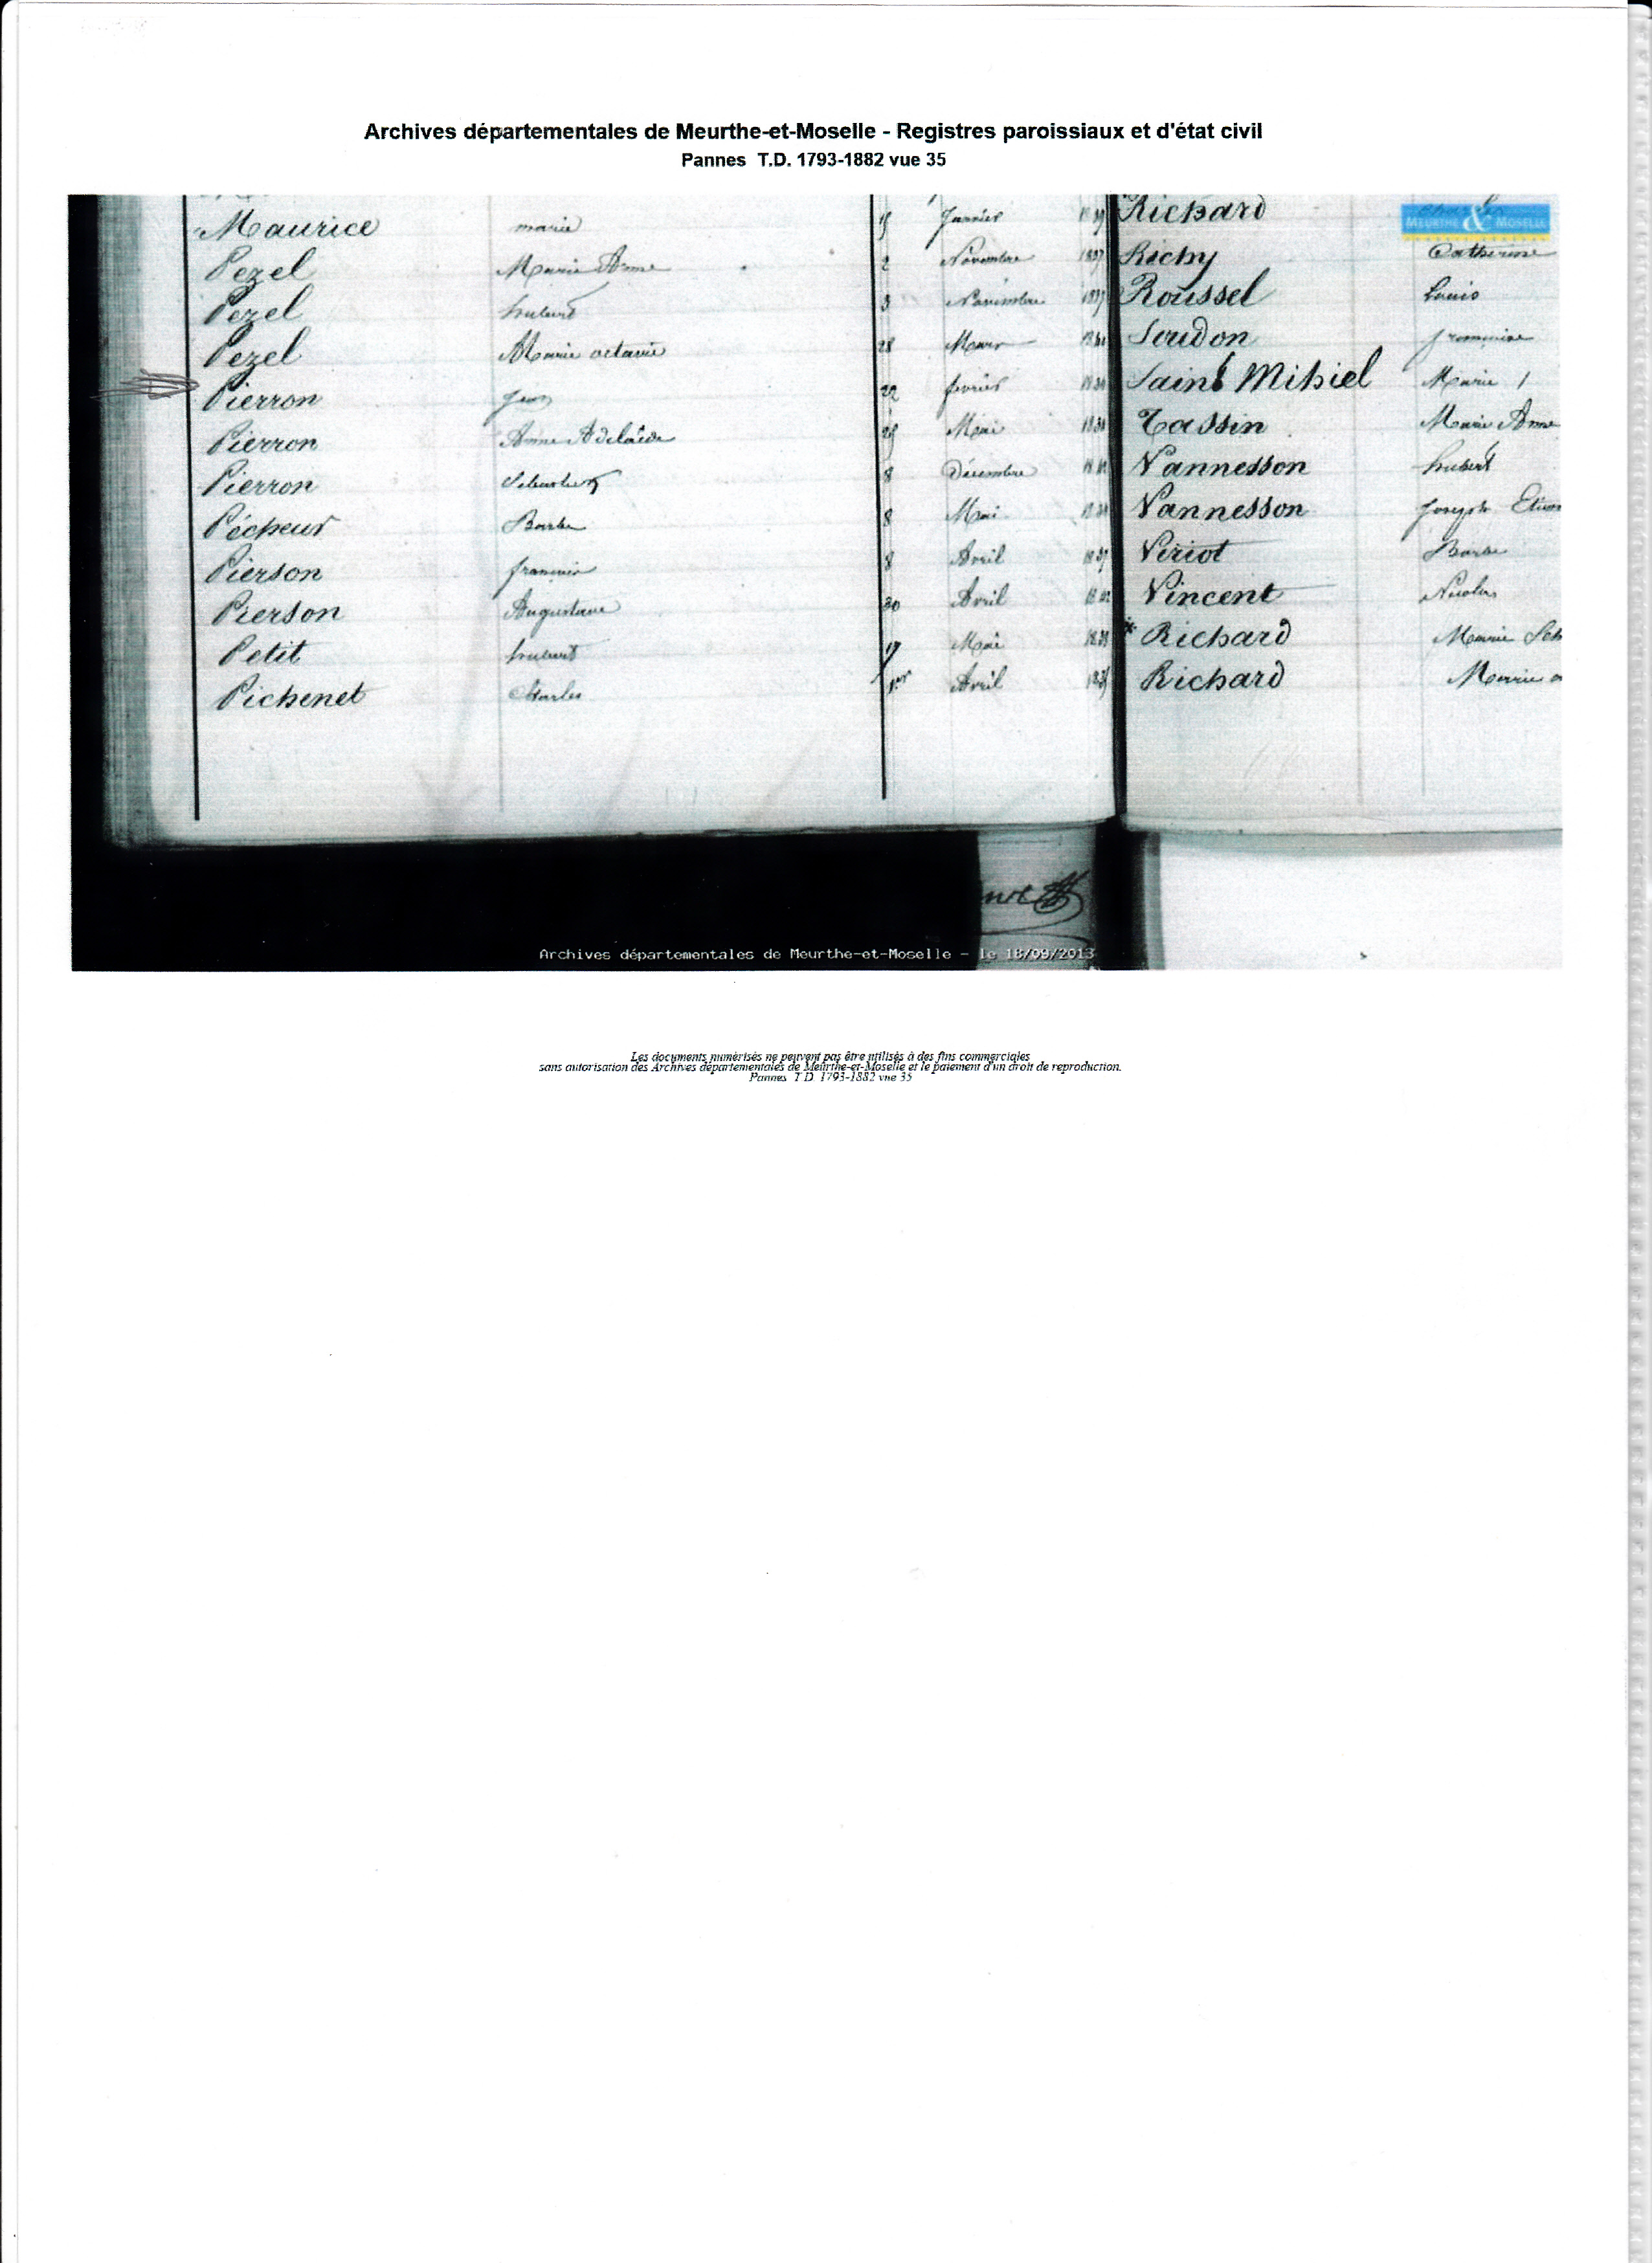 Archives départementales de Meurthe-et-Moselle - Registres paroissiaux et d'état civil
Pannes T.D. 1793-1882 vue 35
Maurice marie 15 Janvier
Pezel Marie Anne 2 Novembre 1837
Pezel hubert 3 Novembre 1837
Pezel Marie octavie 28 Mars
Pierron Jean 22 février
Pierron Anne Adelaïde Mai
Pierron Sébastien 8 Décembre
Pécheur Barbe 8 Mai
Pierson françois 8 Avril
Pierson Augustine 30 Avril
Petit hubert 17 Mai
Pichenet Charles 1er Avril
Richard
MEURTHE & MOSELLE
Richy Catherine
Roussel Louis
Soudon françoise
Saint Mihiel Marie
Tassin Marie Anne
Vannesson hubert
Vannesson Joseph
Viriot Barbe
Vincent Nicolas
Richard Marie
Richard Marie
Archives départementales de Meurthe-et-Moselle - le 18/09/2013
Les documents numérisés ne peuvent pas être utilisés à des fins commerciales
sans autorisation des Archives départementales de Meurthe-et-Moselle et le paiement d'un droit de reproduction.
Pannes T.D. 1793-1882 vue 35